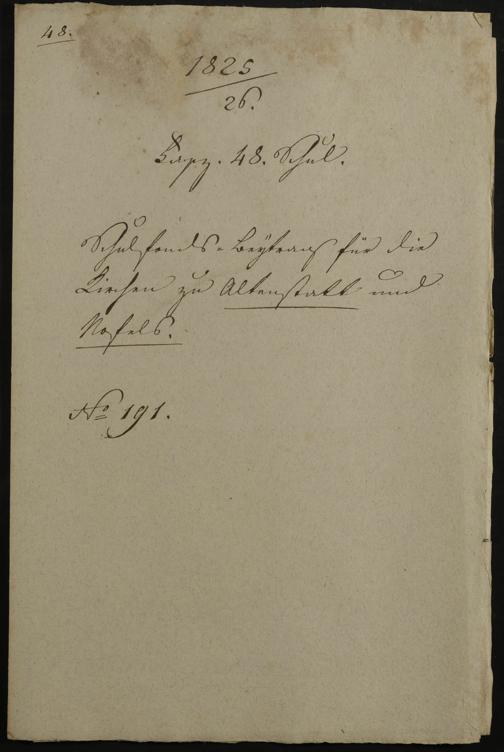 48.
1825
26.
48. Schul.
Schulfonds-Beytrag für die
Kirchen zu Altenstatt und
Nofels.
No 191.